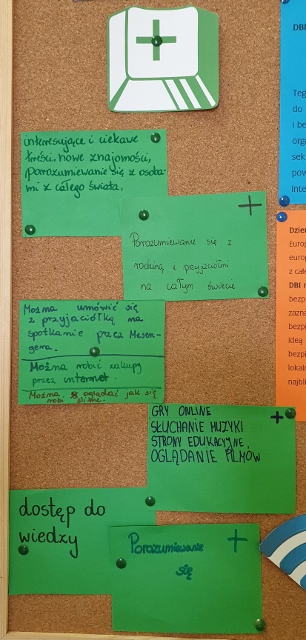 +
interesujące i ciekawe
treści, nowe znajomości,
porozumiewanie się z osoba-
mi z całego świata,
+
Porozumiewanie się z
rodziną i przyjaciółmi
na całym świecie
Można umówić się
z przyjaciółką na
spotkanie przez Messen-
gera.
Można robić zakupy
przez internet.
Można oglądać jak się
robi
GRY ONLINE +
SŁUCHANIE MUZYKI
STRONY EDUKACYJNE,
OGLĄDANIE FILMÓW
dostęp do
wiedzy
Porozumiewanie +
się
DBI
Teg
do
i be
orga
sek
pow
Inte
Dzie
Euro
euro
z cał
DBI
bezp
zazna
bezp
Ideą
bezpi
lokal
najbli